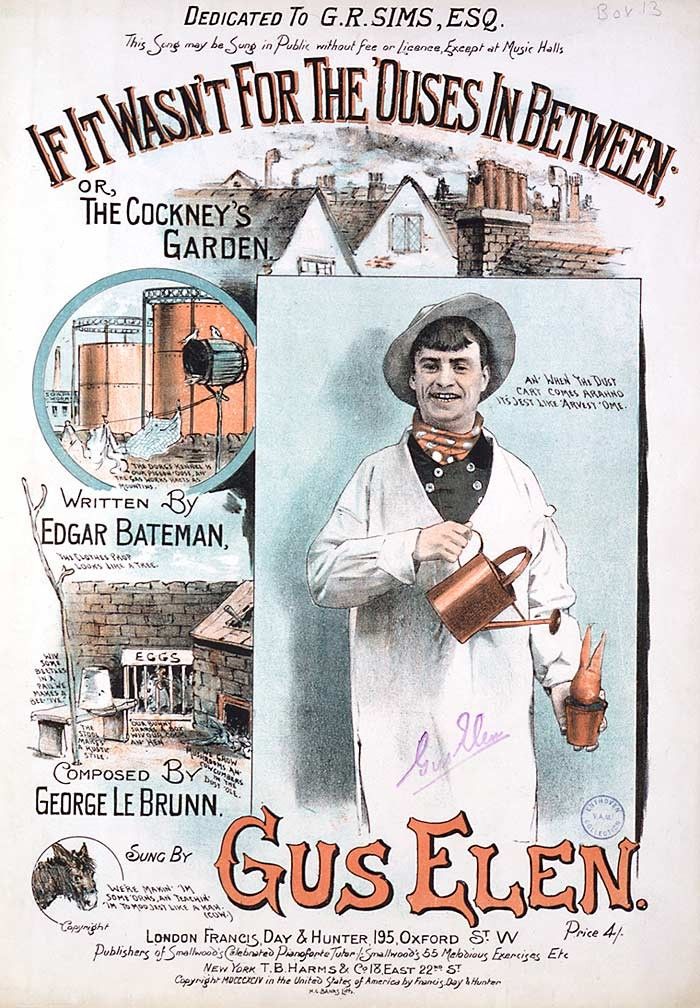 Box 13
DEDICATED TO G.R.SIMS, ESQ.
This Song may be Sung in Public without fee or Licence, Except at Music Halls
IF IT WASN'T FOR THE 'OUSES IN BETWEEN;
OR,
THE COCKNEY'S
GARDEN.
AN' WHEN THE DUST
CART COMES ARAHND
IT'S JEST LIKE 'ARVEST 'OME.
SOAP
WORKS
THE DORG'S KENNEL IS
OUR PIGEON-'OUSE, AN'
THE GAS WORKS HACTS AS
MOUNTINS.
WRITTEN BY
EDGAR BATEMAN,
THE CLOTHES PROP
LOOKS LIKE A TREE.
WIV
SOME
BEETLES
IN A
PAIL WE
MAKES A
BEE-'IVE.
EGGS
THE
STOOL
MAKES A
RUSTIC
STILE.
OUR BUNNY
SHARES A BOX
WIV OUR COCK
AN' HEN
GROW
MUSHROOMS AN'
COWCUMBERS
IN THE
DUST 'OLE.
COMPOSED BY
GEORGE LE BRUNN.
Gus Elen
ENTHOVEN
V.A.M.
COLLECTION
SUNG BY
GUS ELEN.
WE'RE MAKIN' 'IM
SOME 'ORNS, AN' TEACHIN'
'IM TO MOO JEST LIKE A KAH.
(COW.)
Copyright
LONDON FRANCIS, DAY & HUNTER, 195, OXFORD ST. W
Price 4/-
Publishers of Smallwood's Celebrated Pianoforte Tutor, Smallwood's 55 Melodious Exercises Etc
NEW YORK T. B. HARMS & Co 18, EAST 22ND ST
Copyright MDCCCXCIV in the United States of America by Francis, Day & Hunter
H.G. BANKS LITH.